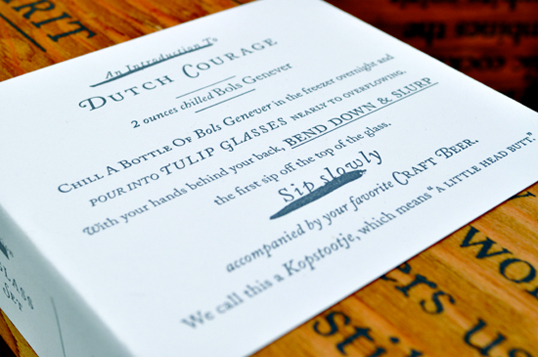 An Introduction To
DUTCH COURAGE
2 ounces chilled Bols Genever
CHILL A BOTTLE OF Bols Genever in the freezer overnight and
POUR INTO TULIP GLASSES NEARLY TO OVERFLOWING.
With your hands behind your back, BEND DOWN & SLURP
the first sip off the top of the glass.
Sip slowly
accompanied by your favorite CRAFT BEER.
We call this a Kopstootje, which means "A LITTLE HEAD BUTT."
GLASS
SET